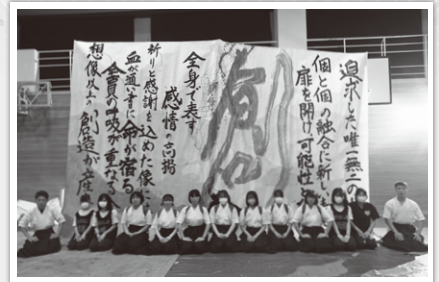 追求した唯一無二の
個と個の融合に新しい
扉を開け可能性
創
全身で表す
感情の高揚
祈りと感謝を込めた像に
血が通いすに命が宿る
全員の呼吸が重なる
想像以上の創造が